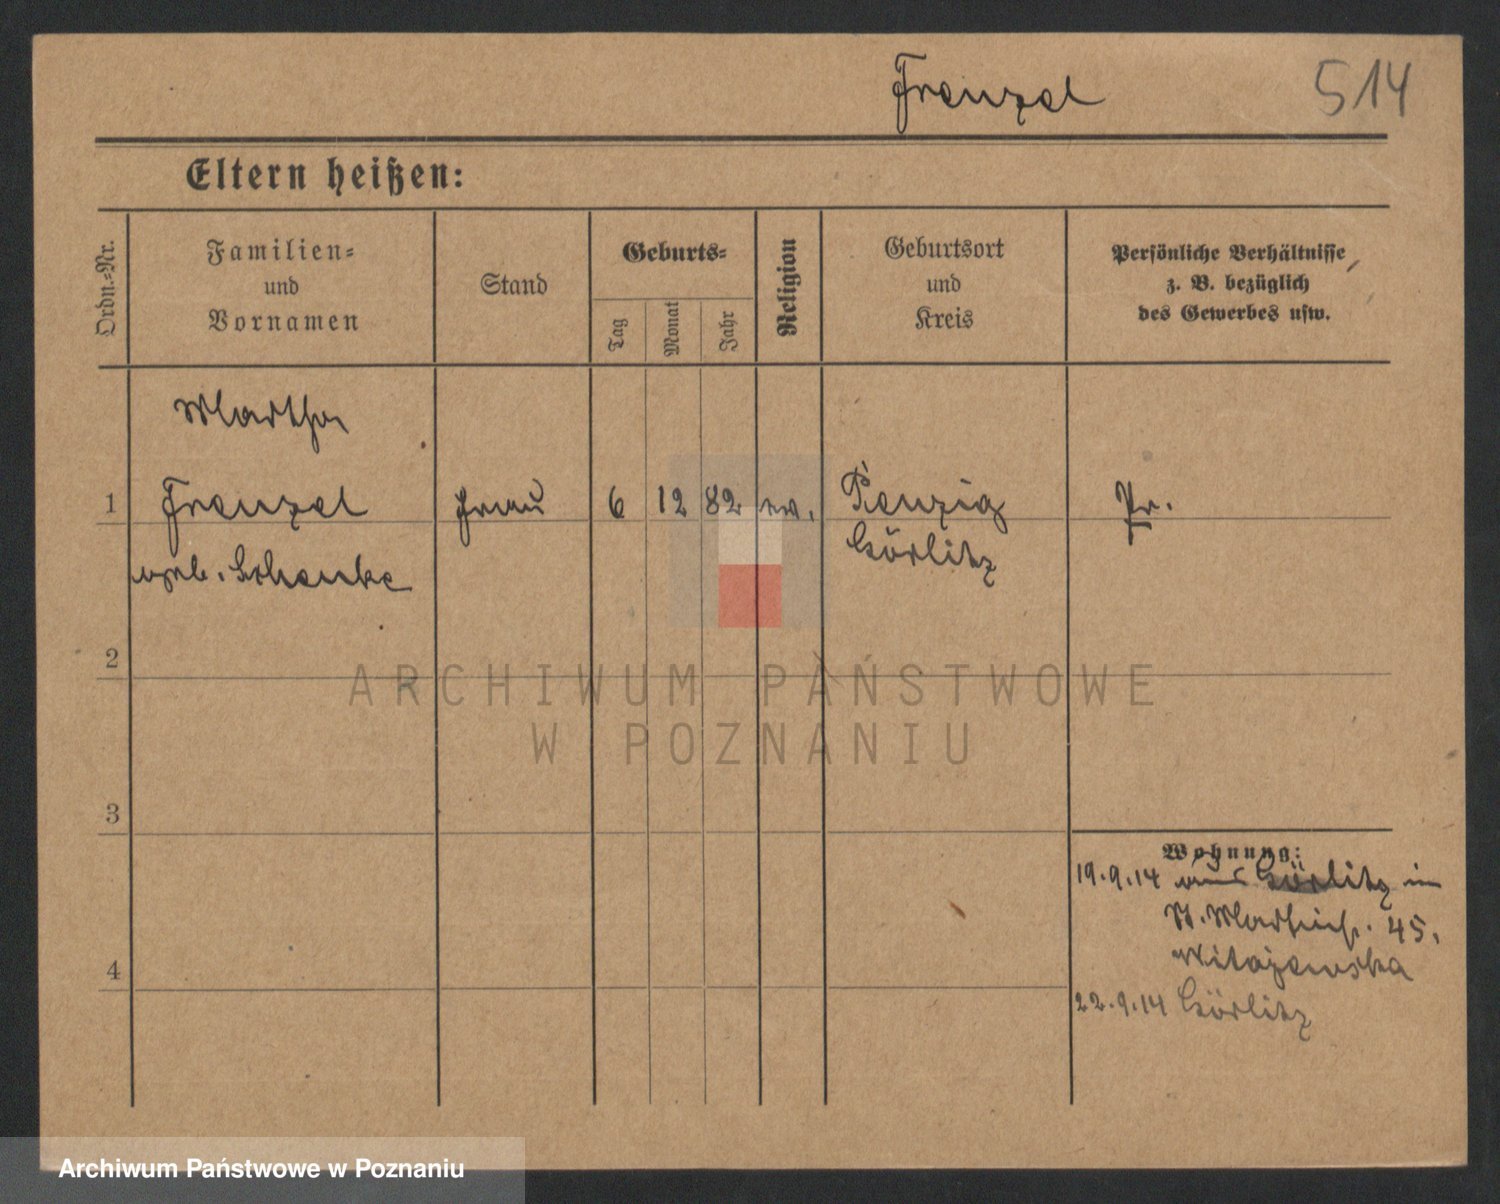 Frenzel 514
Eltern heißen:
Ordn.-Nr.
Familien-
und
Vornamen
Stand
Geburts-
Tag
Monat
Jahr
Religion
Geburtsort
und
Kreis
Persönliche Verhältnisse
z. B. bezüglich
des Gewerbes usw.
Martha
1 Frenzel Frau 6 12 82 ev. Penzig Pr.
geb. Schenke Görlitz
2
3
4
Wohnung:
19.9.14 aus Görlitz in
St. Martinstr. 45.
Witajewska
22.9.14 Görlitz
ARCHIWUM PAŃSTWOWE
W POZNANIU
Archiwum Państwowe w Poznaniu